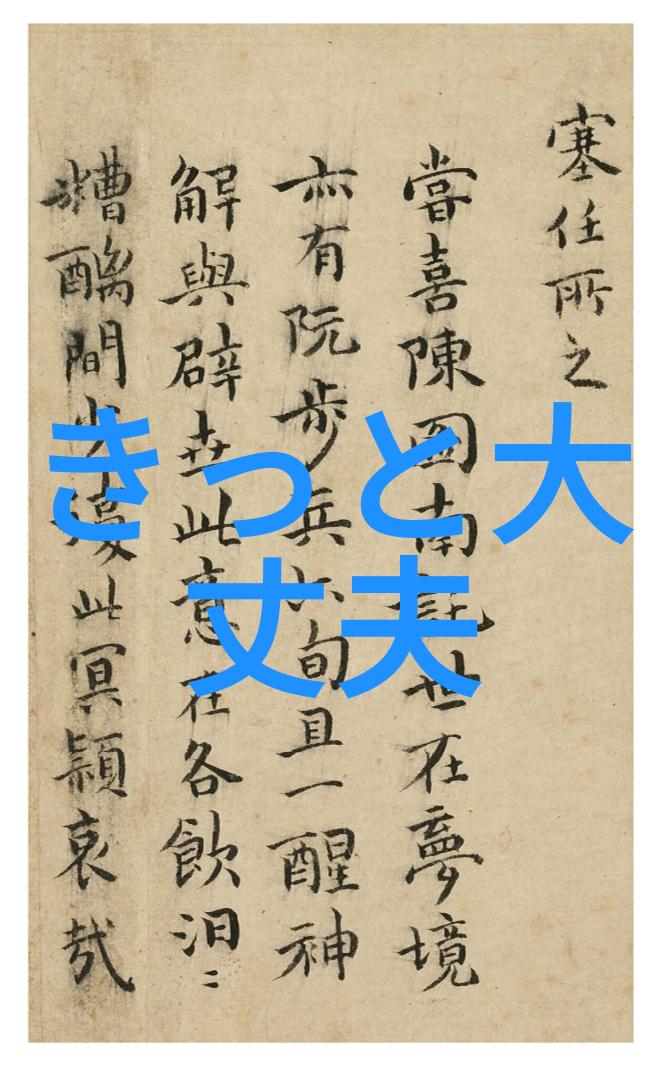 塞任所之
嘗喜陳圖南託世在夢境
亦有阮步兵六旬且一醒神
解與辟世此意在各飲汩〻
糟醨間少此冥哀哉
きっと大
丈夫